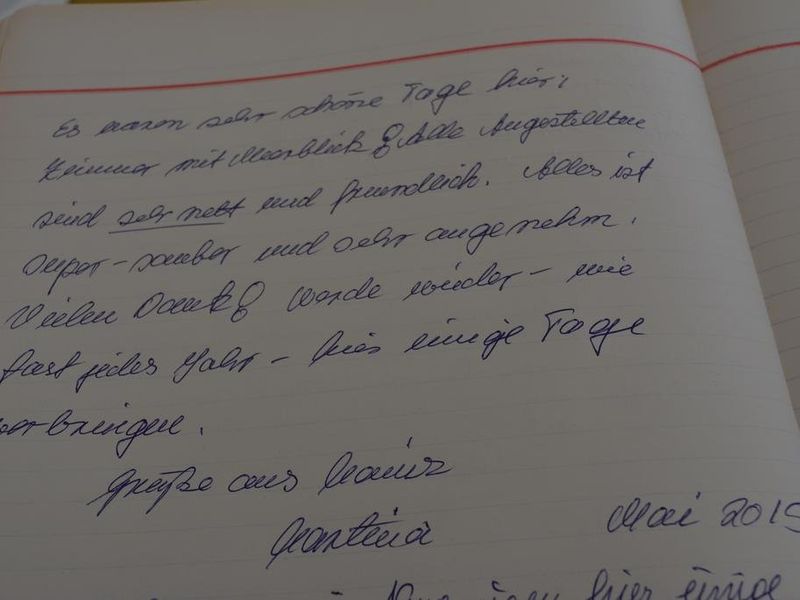 Es waren sehr schöne Tage hier,
Zimmer mit Meerblick! Alle Angestellten
sind sehr nett und freundlich. Alles ist
super-sauber und sehr angenehm.
Vielen Dank! Werde wieder - wie
fast jedes Jahr - hier einige Tage
verbringen.
Grüße aus Mainz
Martina Mai 2015
hier einige